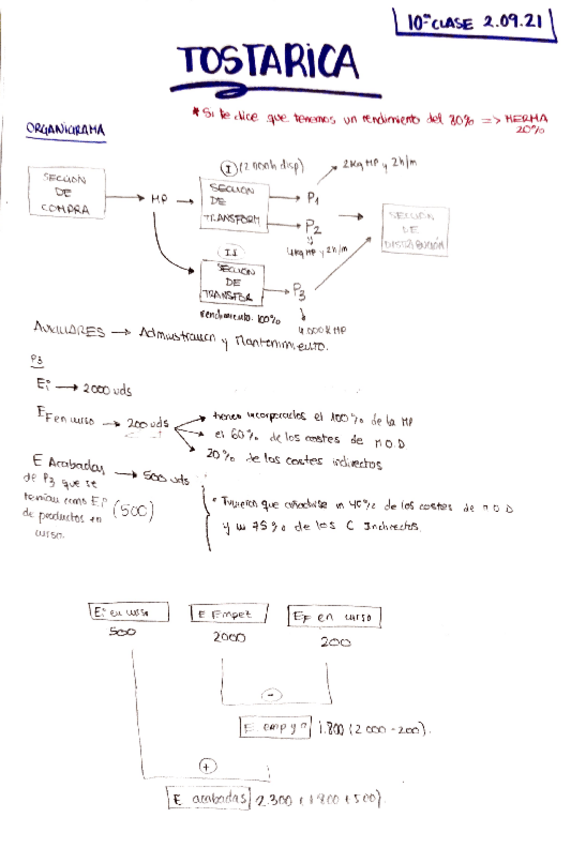 10ª CLASE 2.09.21
TOSTARICA
* Si te dice que tenemos un rendimiento del 80% => MERMA
20%
ORGANIGRAMA
SECCION
DE
COMPRA
MP
I (2 h disp)
SECCION
DE
TRANSFORM
P1
2Kg MP y 2h/m
P2
4Kg MP y 2h/m
SECCION
DE
DISTRIBUCIÓN
II
SECCION
DE
TRANSFOR
rendimiento. 100%
P3
4.000K MP
AUXILIARES → Administracion y Mantenimiento.
P3
Ei → 2000 uds
EF en curso → 200 uds
tienen incorporados el 100% de la MP
el 60% de los costes de M.O.D
20% de los costes indirectos
E Acabadas → 500 uds
de P3 que se
tenian como
de productos en (500)
curso.
* Tuvieron que añadirse un 40% de los costes de M.O.D
y un 75% de los C Indirectos.
Ei en curso
500
E Empez
2000
EF en curso
200
-
E emp y 1.800 (2000-200).
+
E acabadas 2.300 (1800+500).